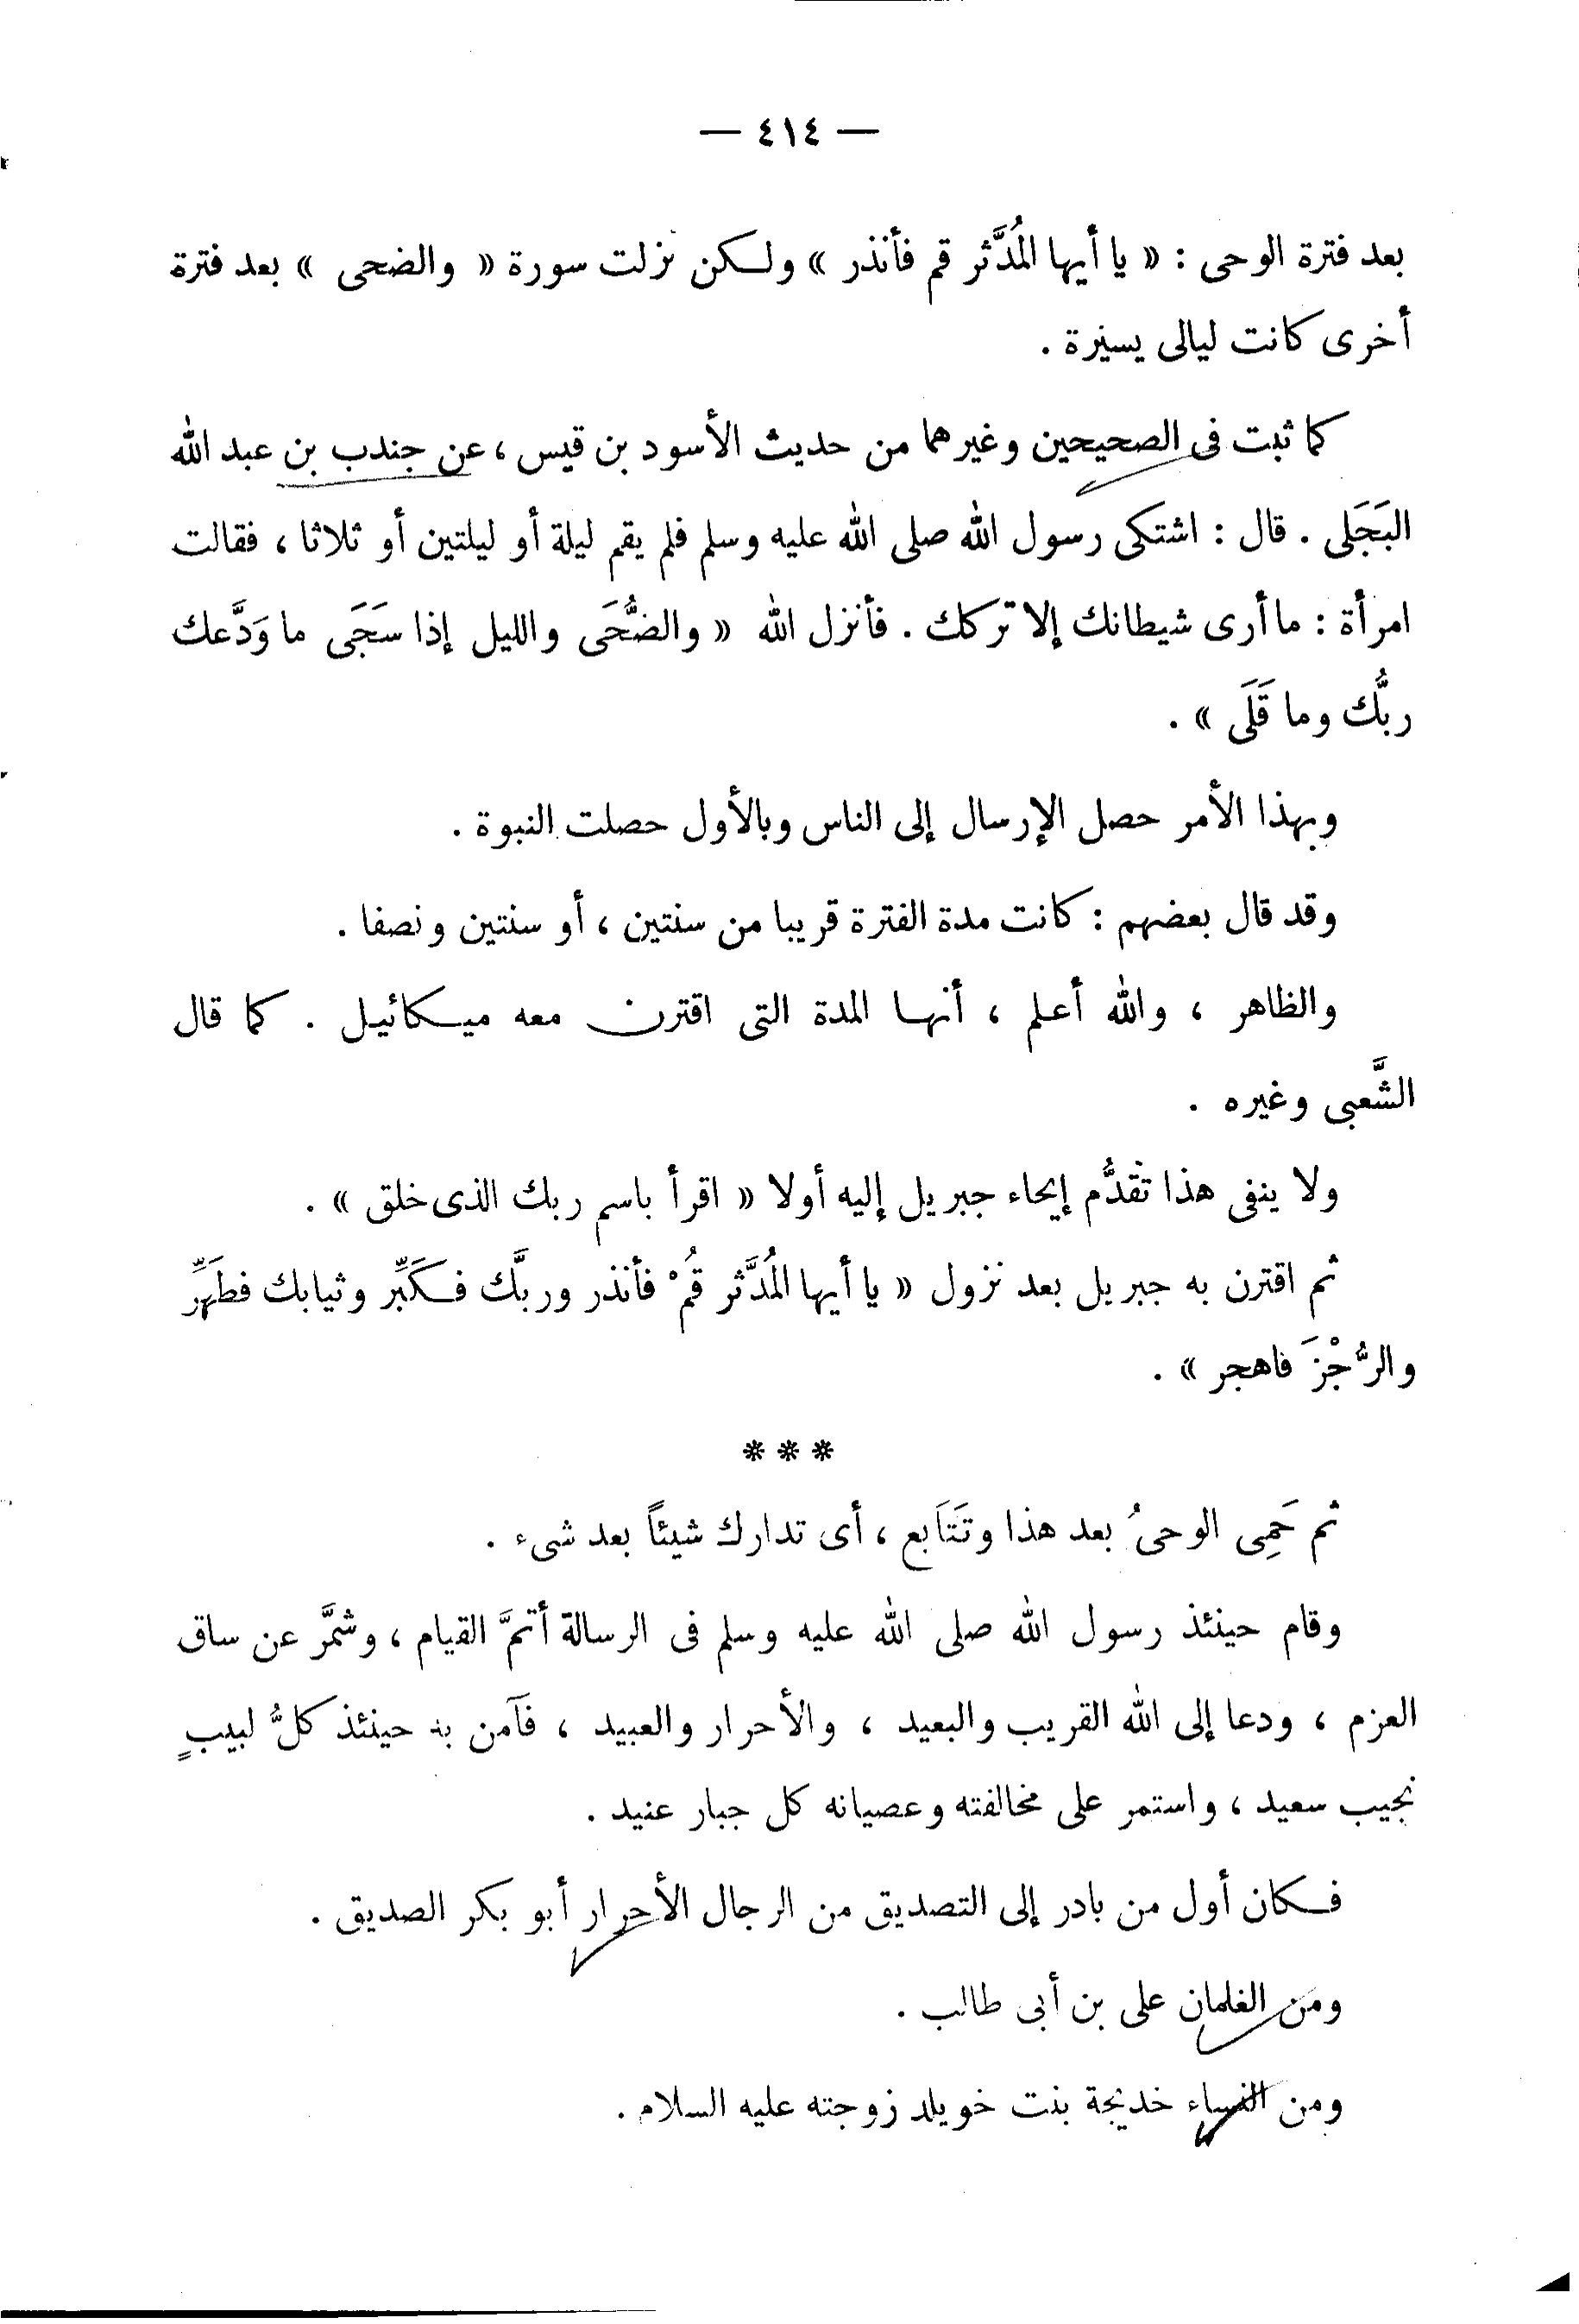 — ٤١٤ —
بعد فترة الوحى : « يا أيها المُدَّثر قم فأنذر » ولكن نزلت سورة « والضحى » بعد فترة
أخرى كانت ليالى يسيرة .
كما ثبت فى الصحيحين وغيرهما من حديث الأسود بن قيس ، عن جندب بن عبد الله
البَجَلى . قال : اشتكى رسول الله صلى الله عليه وسلم فلم يقم ليلة أو ليلتين أو ثلاثا ، فقالت
امرأة : ما أرى شيطانك إلا تركك . فأنزل الله « والضُّحَى والليل إذا سَجَى ما وَدَّعك
ربُّك وما قَلَى » .
وبهذا الأمر حصل الإرسال إلى الناس وبالأول حصلت النبوة .
وقد قال بعضهم : كانت مدة الفترة قريبا من سنتين ، أو سنتين ونصفا .
والظاهر ، والله أعلم ، أنها المدة التى اقترن معه ميكائيل . كما قال
الشَّعبى وغيره .
ولا ينفى هذا تقدُّم إيحاء جبريل إليه أولا « اقرأ باسم ربك الذى خلق » .
ثم اقترن به جبريل بعد نزول « يا أيها المُدَّثر قُمْ فأنذر وربَّك فكَبِّر وثيابك فطَهِّر
والرُّجْزَ فاهجر » .
* * *
ثم حَمِى الوحىُ بعد هذا وتَتَابع ، أى تدارك شيئاً بعد شىء .
وقام حينئذ رسول الله صلى الله عليه وسلم فى الرسالة أتمَّ القيام ، وشمَّر عن ساق
العزم ، ودعا إلى الله القريب والبعيد ، والأحرار والعبيد ، فآمن به حينئذ كلُّ لبيبٍ
نجيب سعيد ، واستمر على مخالفته وعصيانه كل جبار عنيد .
فكان أول من بادر إلى التصديق من الرجال الأحرار أبو بكر الصديق .
ومن الغلمان على بن أبى طالب .
ومن النساء خديجة بنت خويلد زوجته عليه السلام .